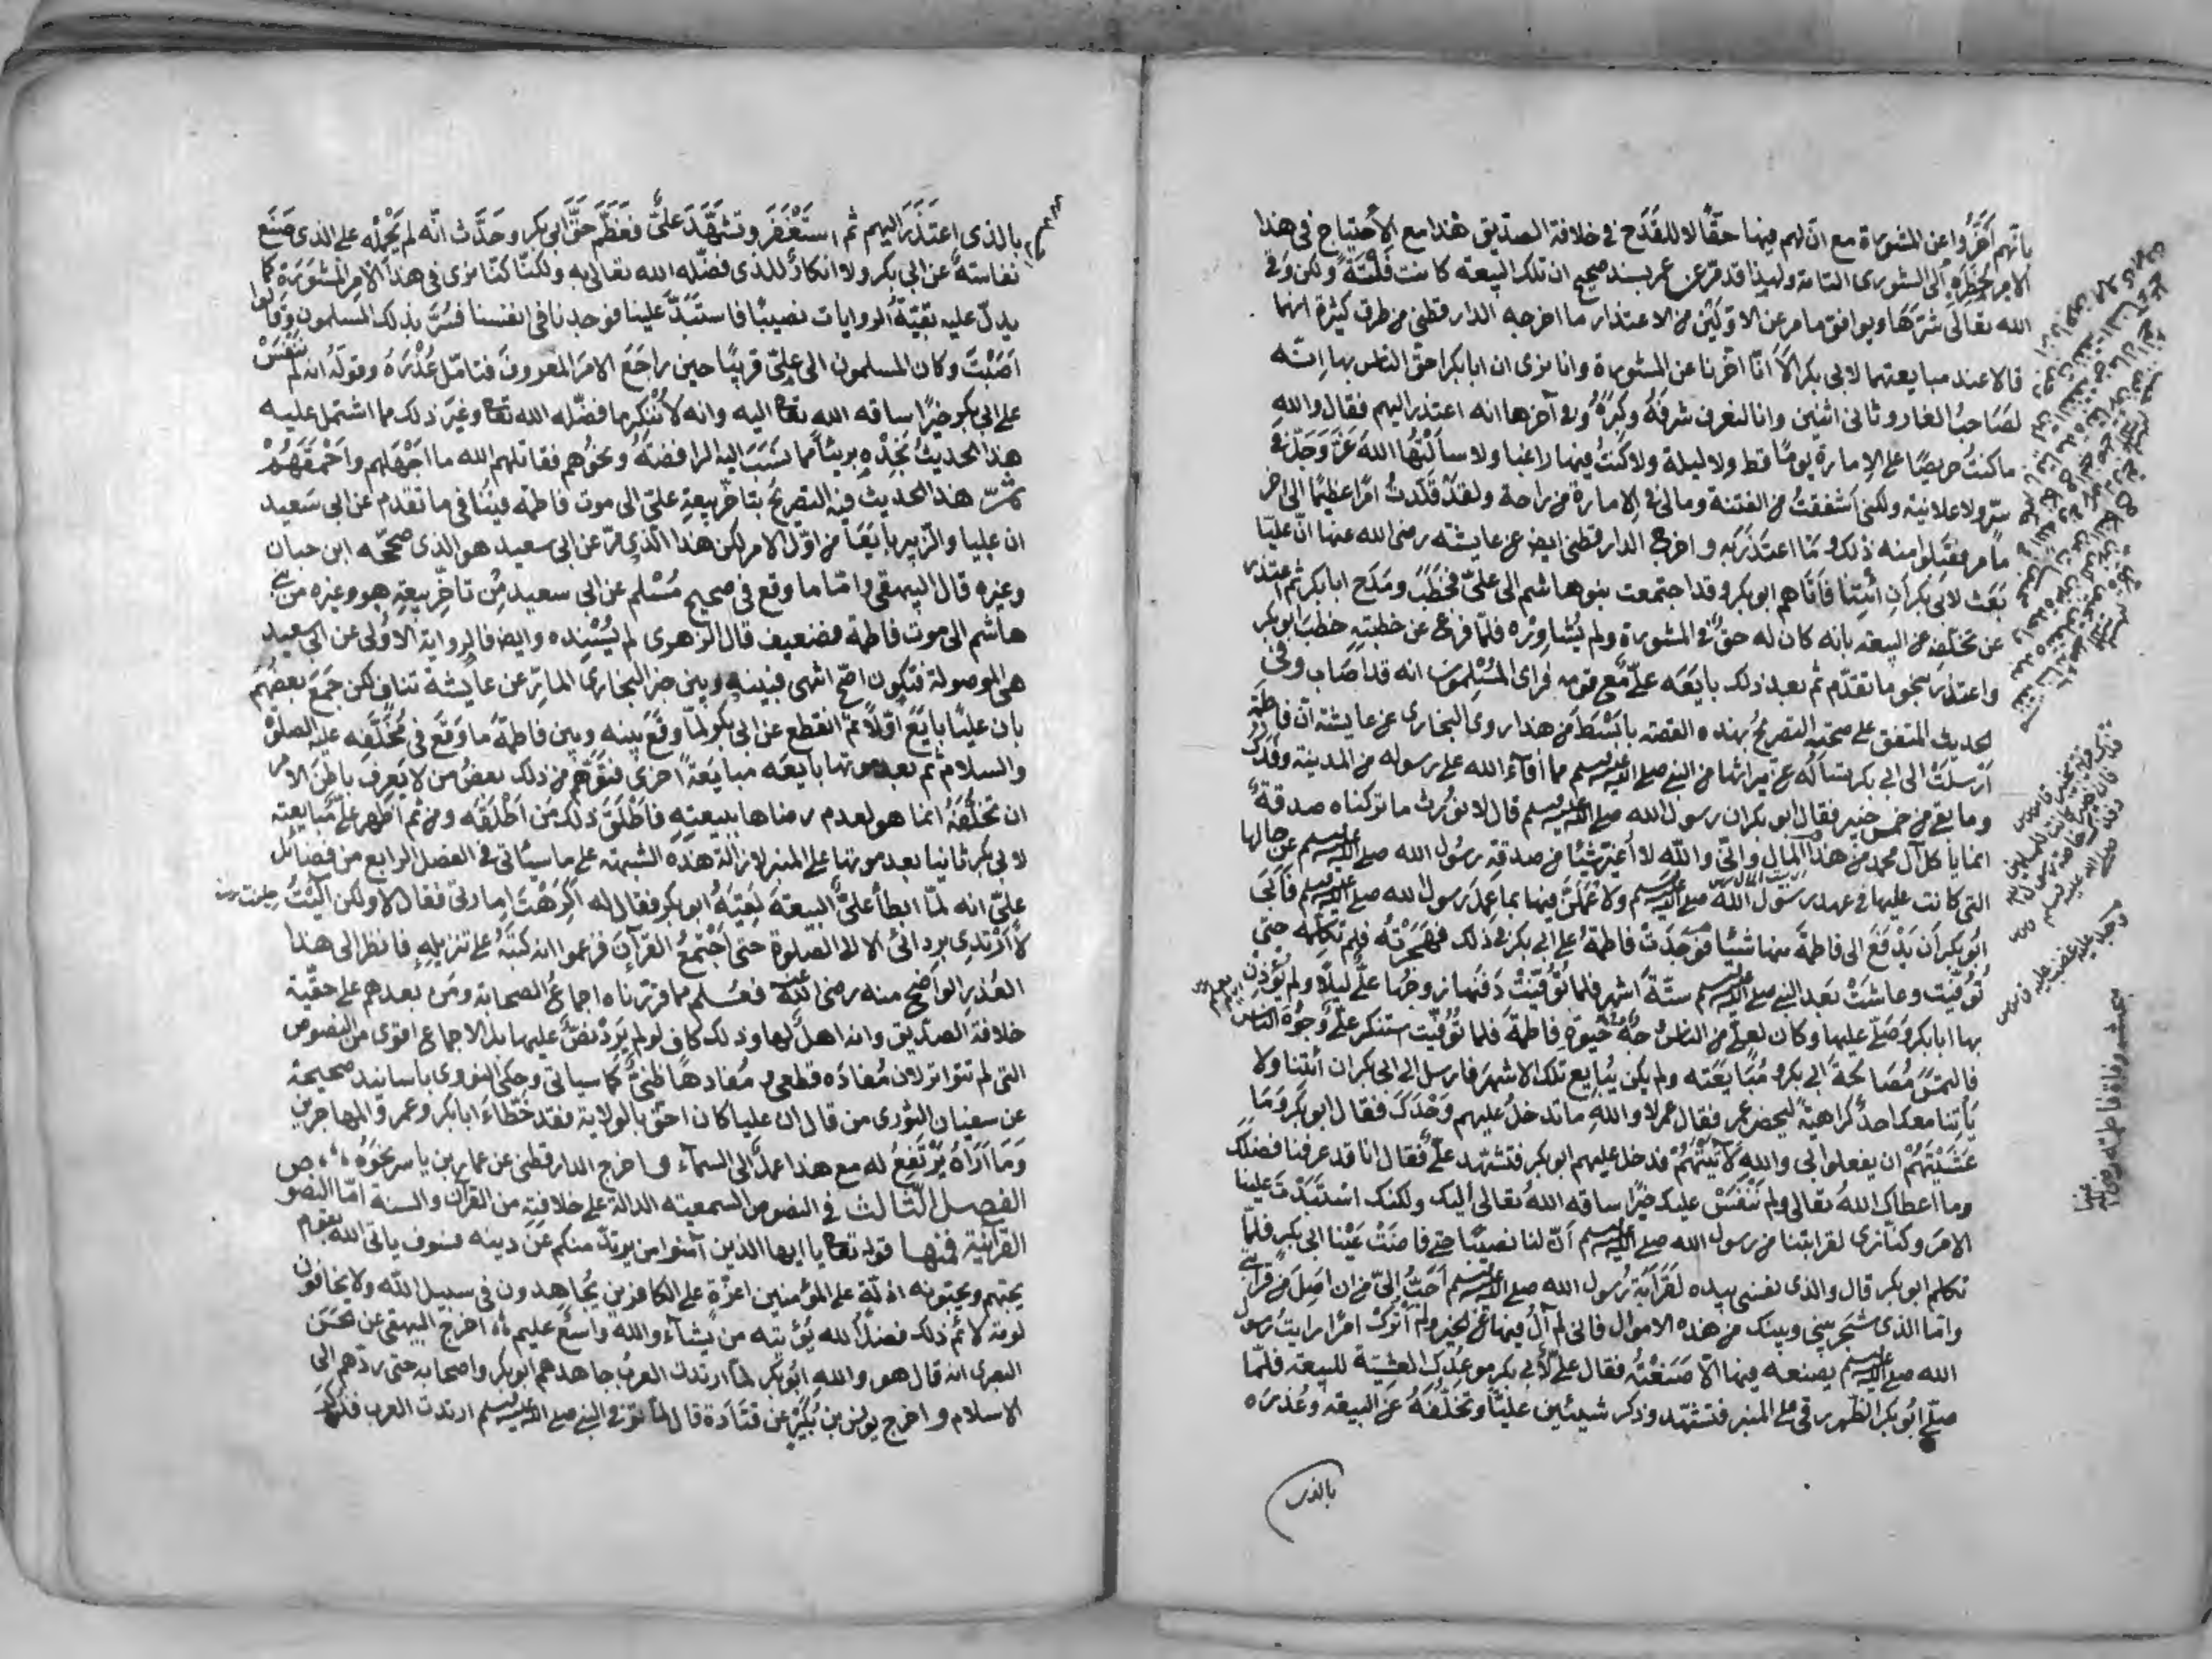 بانهم اخروا عن المشورة مع ان لهم فيها حقا لا للقدح في خلافة الصديق هذا مع الاحتياج في هذا
الامر لخطره الى الشورى التامة ولهذا قد مر عن عمر بسند صحيح ان تلك البيعة كانت فلتة ولكن وقى
الله تعالى شرها ويوافق ما مر عن الاولين من الاعتذار ما اخرجه الدارقطني من طرق كثيرة انهما
قالا عند مبايعتهما لابي بكر الا انا اخرنا عن المشورة وانا نرى ان ابا بكر احق الناس بها انه
لصاحب الغار وثاني اثنين وانا لنعرف شرفه وكبره وفي آخرها انه اعتذر اليهم فقال والله
ما كنت حريصا على الامارة يوما قط ولا ليلة ولا كنت فيها راغبا ولا سألتها الله عز وجل في
سر ولا علانية ولكني اشفقت من الفتنة وما لي في الامارة من راحة ولقد قلدت امرا عظيما الى آخر
ما مر فقبلوا منه ذلك وما اعتذر به واخرج الدارقطني ايض عن عايشة رضي الله عنها ان عليا
بعث لابي بكر ان ائتنا فاتاهم ابو بكر وقد اجتمعت بنو هاشم الى علي فخطب ومدح ابا بكر ثم اعتذر
عن تخلفه عن البيعة بانه كان له حق في المشورة ولم يشاوره فلما فرغ عن خطبته خطب ابو بكر
واعتذر بنحو ما تقدم ثم بعد ذلك بايعه علي مع قومه فراى المسلمون انه قد اصاب وفي
الحديث المتفق على صحته التصريح بهذه القصة بابسط من هذا روى البخاري عن عايشة ان فاطمة
ارسلت الى ابي بكر تسأله عن ميراثها من النبي صلى الله عليه وسلم مما افآء الله على رسوله من المدينة وفدك
وما بقي من خمس خيبر فقال ابو بكر ان رسول الله صلى الله عليه وسلم قال لا نورث ما تركناه صدقة
انما ياكل آل محمد من هذا المال واني والله لا اغير شيئا من صدقة رسول الله صلى الله عليه وسلم عن حالها
التي كانت عليها في عهد رسول الله صلى الله عليه وسلم ولاعملن فيها بما عمل رسول الله صلى الله عليه وسلم فابى
ابو بكر ان يدفع الى فاطمة منها شيئا فوجدت فاطمة على ابي بكر في ذلك فهجرته فلم تكلمه حتى
توفيت وعاشت بعد النبي صلى الله عليه وسلم ستة اشهر فلما توفيت دفنها زوجها علي ليلا ولم يؤذن
بها ابا بكر وصلى عليها وكان لعلي من الناس وجه حيوة فاطمة فلما توفيت استنكر علي وجوه الناس
فالتمس مصالحة ابي بكر ومبايعته ولم يكن يبايع تلك الاشهر فارسل الى ابي بكر ان ائتنا ولا
ياتنا معك احد كراهية ليحضر عمر فقال عمر لا والله ما تدخل عليهم وحدك فقال ابو بكر وما
عسيتهم ان يفعلوا بي والله لآتينهم فدخل عليهم ابو بكر فتشهد علي فقال انا قد عرفنا فضلك
وما اعطاك الله تعالى ولم ننفس عليك خيرا ساقه الله تعالى اليك ولكنك استبددت علينا
الامر وكنا نرى لقرابتنا من رسول الله صلى الله عليه وسلم ان لنا نصيبا حتى فاضت عينا ابي بكر فلما
تكلم ابو بكر قال والذي نفسي بيده لقرابة رسول الله صلى الله عليه وسلم احب الي من ان اصل من قرابتي
واما الذي شجر بيني وبينك من هذه الاموال فاني لم آل فيها عن الخير ولم اترك امرا رايت رسول
الله صلى الله عليه وسلم يصنعه فيها الا صنعته فقال علي لابي بكر موعدك العشية للبيعة فلما
صلى ابو بكر الظهر رقى على المنبر فتشهد وذكر شيئين عليا وتخلفه عن البيعة وعذره
بالذي
وجد عليه غضب عليه
معيشه وفاة فاطمة رضي الله عنها
بالذي اعتذر اليهم ثم استغفر وتشهد علي فعظم حق ابي بكر وحدث انه لم يحمله على الذي صنع
نفاسة عن ابي بكر ولا انكار للذي فضله الله تعالى به ولكنا كنا نرى في هذا الامر المشورة كما
يدل عليه بقية الروايات نصيبا فاستبد علينا فوجدنا في انفسنا فسر بذلك المسلمون وقالوا
اصبت وكان المسلمون الى علي قريبا حين راجع الامر المعروف فتامل عذره وقوله انه لم ننفس
على ابي بكر خيرا ساقه الله تعا اليه وانه لا ننكر ما فضله الله تعا وغير ذلك مما اشتمل عليه
هذا الحديث تجده بريئا مما نسب اليه الرافضة ونحوهم فقاتلهم الله ما اجهلهم واحمقهم
ثم هذا الحديث فيه التصريح بتاخر بيعة علي الى موت فاطمة فينافي ما تقدم عن ابي سعيد
ان عليا والزبير بايعا من اول الامر لكن هذا الذي مر عن ابي سعيد هو الذي صححه ابن حبان
وغيره قال البيهقي واما ما وقع في صحيح مسلم عن ابي سعيد من تاخر بيعته هو وغيره من بني
هاشم الى موت فاطمة فضعيف قال الزهري لم يسنده وايضا فالرواية الاولى عن ابي سعيد
هي الموصولة فتكون اصح انتهى فبينه وبين خبر البخاري المار عن عايشة تناف لكن جمع بعضهم
بان عليا بايع اولا ثم انقطع عن ابي بكر لما وقع بينه وبين فاطمة ما وقع في مخلفه عليه الصلوة
والسلام ثم بعد موتها بايعه مبايعة اخرى فتوهم من ذلك بعض من لا يعرف باطن الامر
ان تخلفه انما هو لعدم رضاها ببيعته فاطلق ذلك من اطلقه ومن ثم اظهر علي مبايعته
لابي بكر ثانيا بعد موتها على المنبر لازالة هذه الشبهة على ما سيئاتي في الفصل الرابع من فضائل
علي انه لما ابطأ علي البيعة لقيه ابو بكر فقال له اكرهت امارتي فقال لا ولكن آليت
لا ارتدي بردائي الا الى الصلوة حتى اجتمع القرآن فزعموا انه كتبه على تنزيله فانظر الى هذا
العذر الواضح منه رضي الله عنه فعلم مما قررناه اجماع الصحابة ومن بعدهم على حقية
خلافة الصديق وانه اهل لها وذلك كاف لو لم يرد نص عليها بل الاجماع اقوى من النصوص
التي لم تتواتر لان مفاده قطعي ومفادها ظني كما سياتي وحكى النووي باسانيد صحيحة
عن سفيان الثوري من قال ان عليا كان احق بالولاية فقد خطاء ابا بكر وعمر والمهاجرين
وما اراه يرتفع له مع هذا عمل الى السماء واخرج الدارقطني عن عمار بن ياسر نحوه
الفصل الثالث في النصوص السمعية الدالة على خلافته من القرآن والسنة اما النصوص
القرآنية فمنها قوله تعا يا ايها الذين آمنوا من يرتد منكم عن دينه فسوف ياتي الله بقوم
يحبهم ويحبونه اذلة على المؤمنين اعزة على الكافرين يجاهدون في سبيل الله ولا يخافون
لومة لائم ذلك فضل الله يؤتيه من يشاء والله واسع عليم اخرج البيهقي عن الحسن
البصري انه قال هو والله ابو بكر لما ارتدت العرب جاهدهم ابو بكر واصحابه حتى ردهم الى
الاسلام واخرج يونس بن بكير عن قتادة قال لما توفي النبي صلى الله عليه وسلم ارتدت العرب فذكر